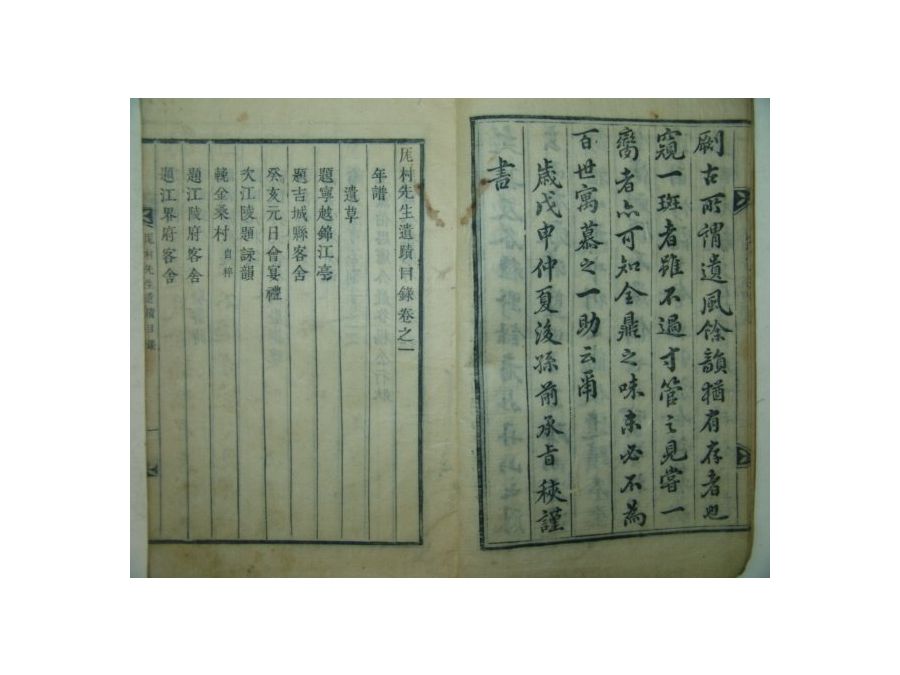 劂古所謂遺風餘韻猶有存者也
窺一斑者雖不過寸管之見嘗一
臠者亦可知全鼎之味未必不為
百世寓慕之一助云爾
歲戊申仲夏後孫前承旨 謹
書
厖村先生遺蹟目錄卷之一
年譜
遺草
題寧越錦江亭
題吉城縣客舍
癸亥元日會宴禮
次江陵題詠韻
輓金桑村 自粹
題江陵府客舍
題江界府客舍
厖村先生遺蹟目錄
一